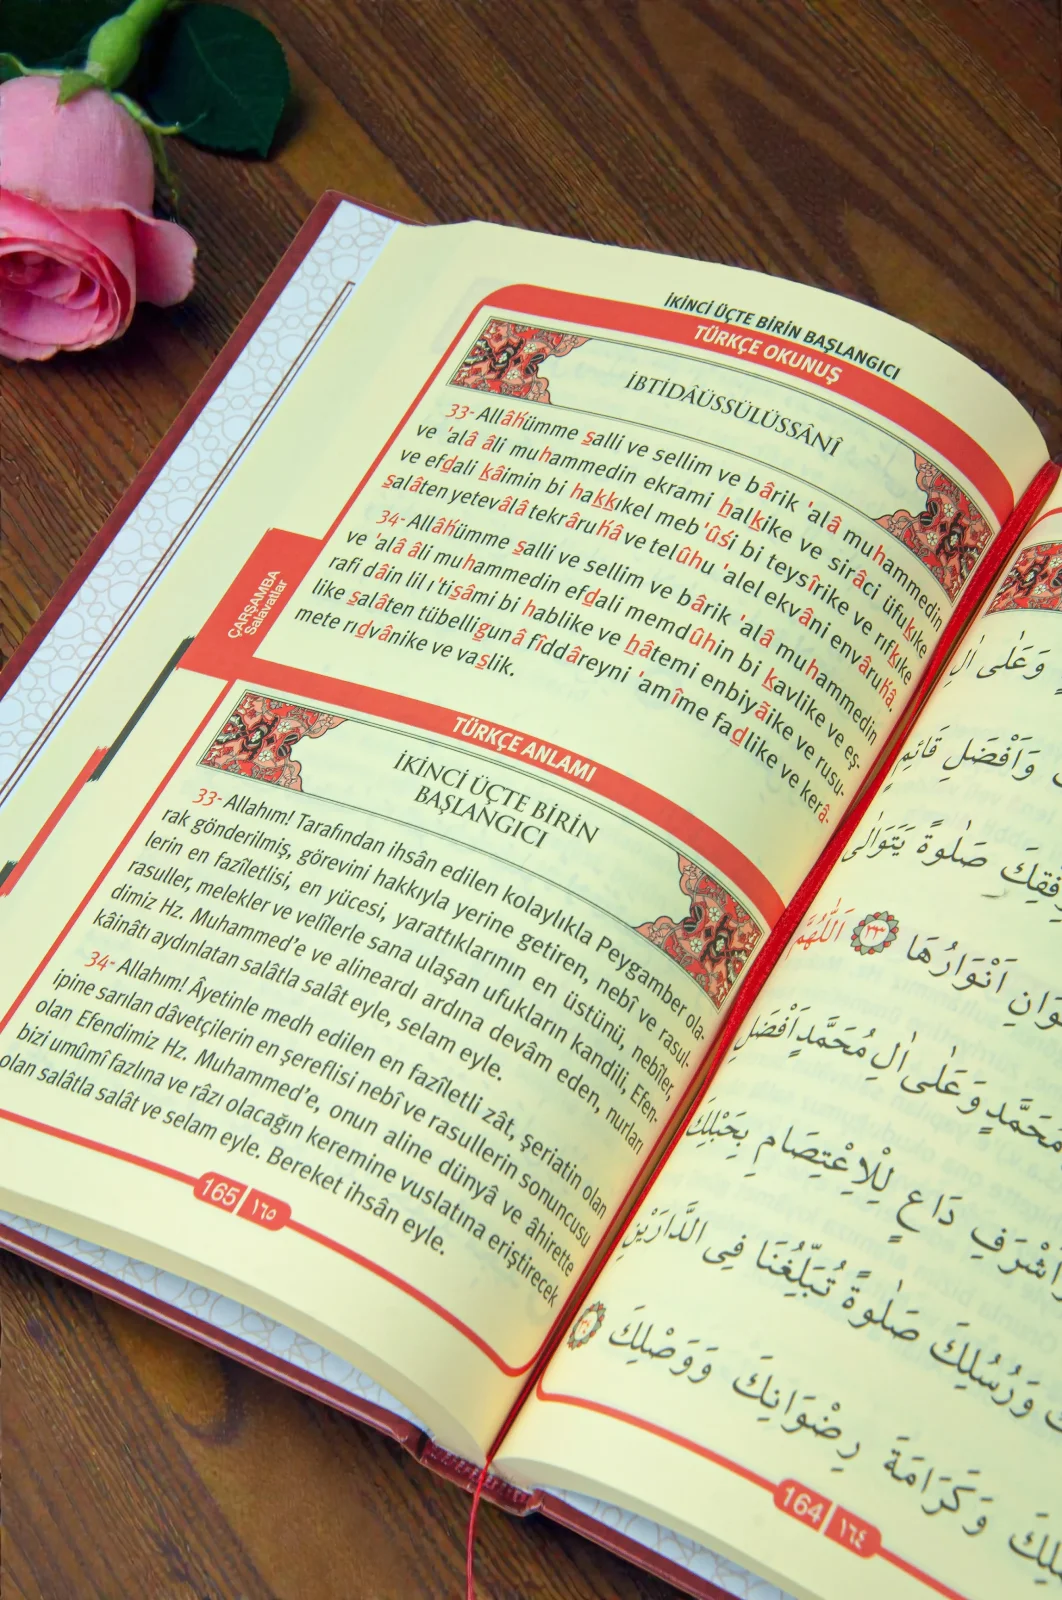 İKİNCİ ÜÇTE BİRİN BAŞLANGICI
TÜRKÇE OKUNUŞ
İBTİDÂÜSSÜLÜSSÂNÎ
33- Allâhümme salli ve sellim ve bârik 'alâ muhammedin
ve 'alâ âli muhammedin ekrami halkike ve sirâci üfukike
ve efdali kâimin bi hakkıkel meb'ûsi bi teysîrike ve rıfkike
salâten yetevâlâ tekrâruhâ ve telûhu 'alel ekvâni envâruhâ.
34- Allâhümme salli ve sellim ve bârik 'alâ muhammedin
ve 'alâ âli muhammedin efdali memdûhin bi kavlike ve eş-
rafi dâin lil ı'tisâmi bi hablike ve hâtemi enbiyâike ve rusu-
like salâten tübelligunâ fîddâreyni 'amîme fadlike ve kerâ-
mete rıdvânike ve vaslik.
ÇARŞAMBA
Salavatlar
TÜRKÇE ANLAMI
İKİNCİ ÜÇTE BİRİN
BAŞLANGICI
33- Allahım! Tarafından ihsân edilen kolaylıkla Peygamber ola-
rak gönderilmiş, görevini hakkıyla yerine getiren, nebî ve rasul-
lerin en fazîletlisi, en yücesi, yarattıklarının en üstünü, nebîler,
rasuller, melekler ve velîlerle sana ulaşan ufukların kandili, Efen-
dimiz Hz. Muhammed'e ve alineardı ardına devâm eden, nurları
kâinâtı aydınlatan salâtla salât eyle, selam eyle.
34- Allahım! Âyetinle medh edilen en fazîletli zât, şeriatin olan
ipine sarılan dâvetçilerin en şereflisi nebî ve rasullerin sonuncusu
olan Efendimiz Hz. Muhammed'e, onun aline dünyâ ve âhirette
bizi umûmî fazlına ve râzı olacağın keremine vuslatına eriştirecek
olan salâtla salât ve selam eyle. Bereket ihsân eyle.
165 ١٦٥
وَعَلٰى اٰلِ
وَاَفْضَلِ قَائِمٍ
صَلٰوةً يَتَوَالٰى
اَنْوَارُهَا ﴿٣٣﴾ اَللّٰهُمَّ
مُحَمَّدٍ وَعَلٰى اٰلِ مُحَمَّدٍ اَفْضَلِ
دَاعٍ لِلْاِعْتِصَامِ بِحَبْلِكَ
وَرُسُلِكَ صَلٰوةً تُبَلِّغُنَا فِى الدَّارَيْنِ
وَكَرَامَةَ رِضْوَانِكَ وَوَصْلِكَ
164 ١٦٤